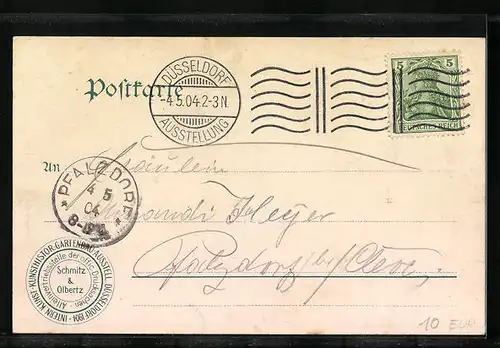 Postkarte
DÜSSELDORF
-4.5.04.2-3N.
AUSSTELLUNG
5 5
DEUTSCHES REICH
An Fräulein
PFALZDORF
4 5
04
Heyer
Pfalzdorf bei Cleve.
INTERN. KUNST-KUNSTHISTOR-GARTENBAU-AUSSTELL. DÜSSELDORF 1904
Alleinvertriebsstelle der offiz. Postkarten
Schmitz
&
Olbertz
10 EUR